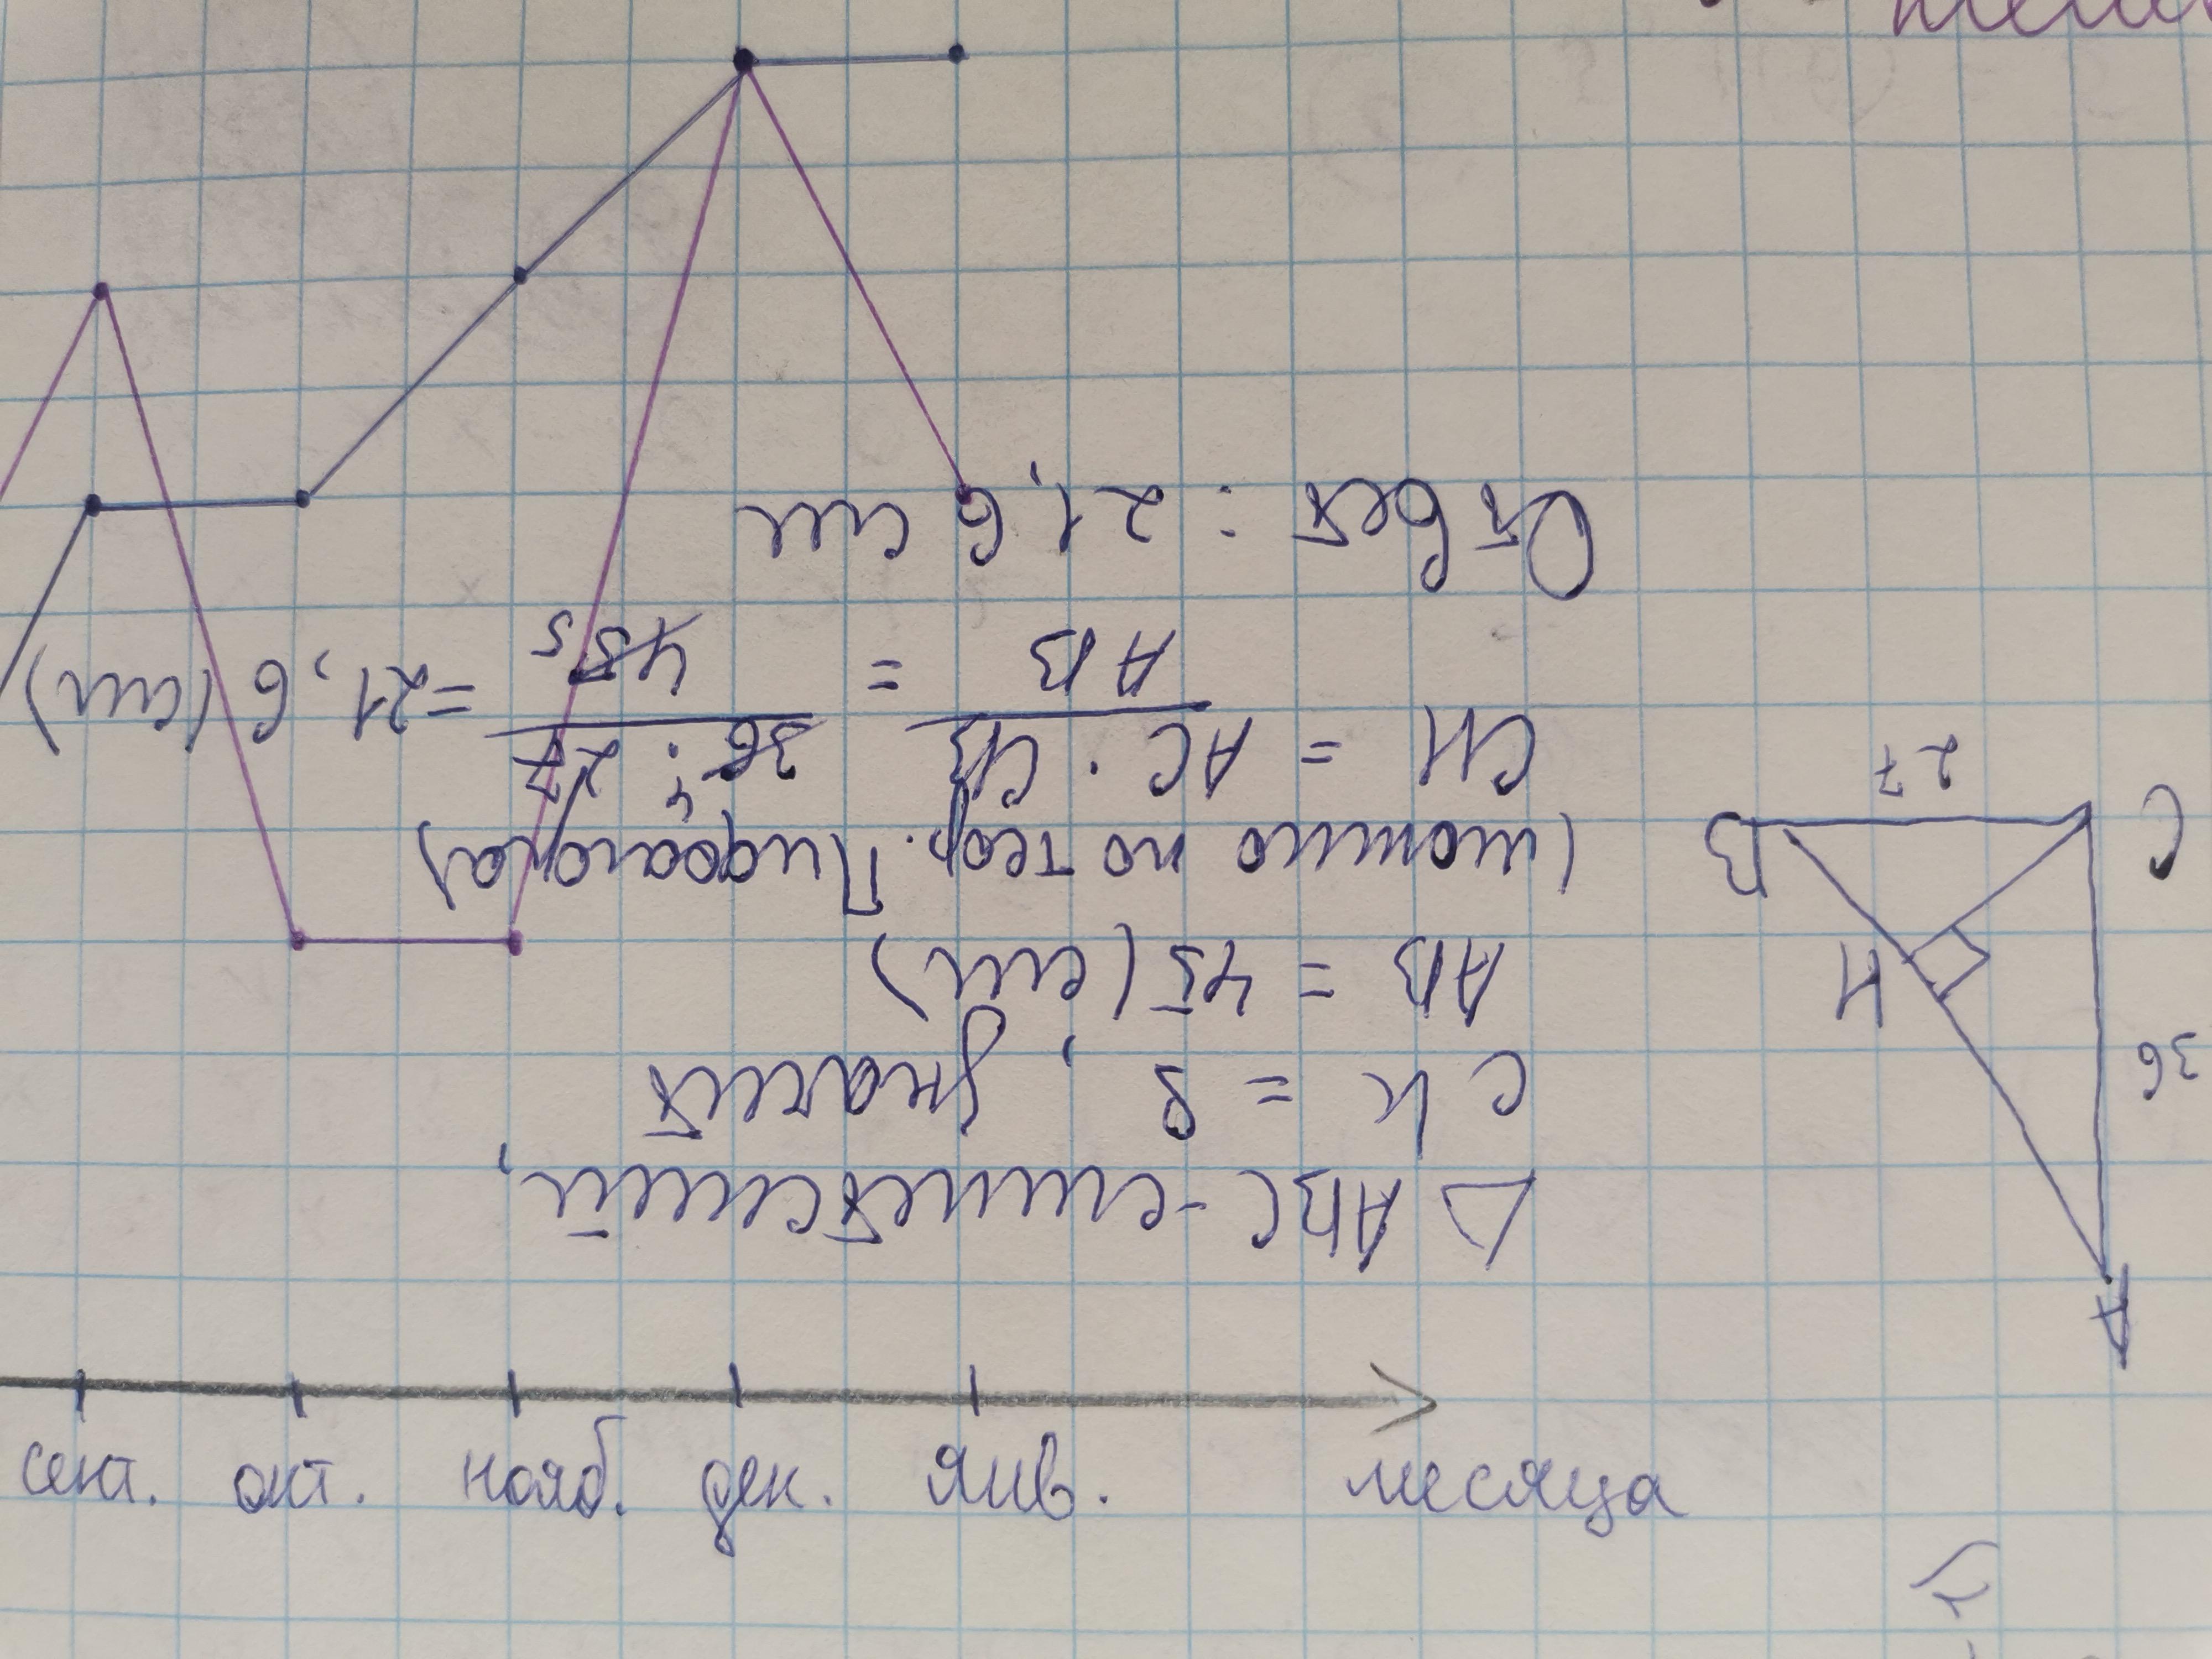 сент. окт. нояб. дек. янв. месяца
△ ABC - египетский,
СК = 9, значит
AB = 45 (см)
(можно по теор. Пифагора)
CH = AC · CB / AB = 36 4 · 27 / 45 5 = 21,6 (см)
Ответ: 21,6 см
A
36
H
B
C
27